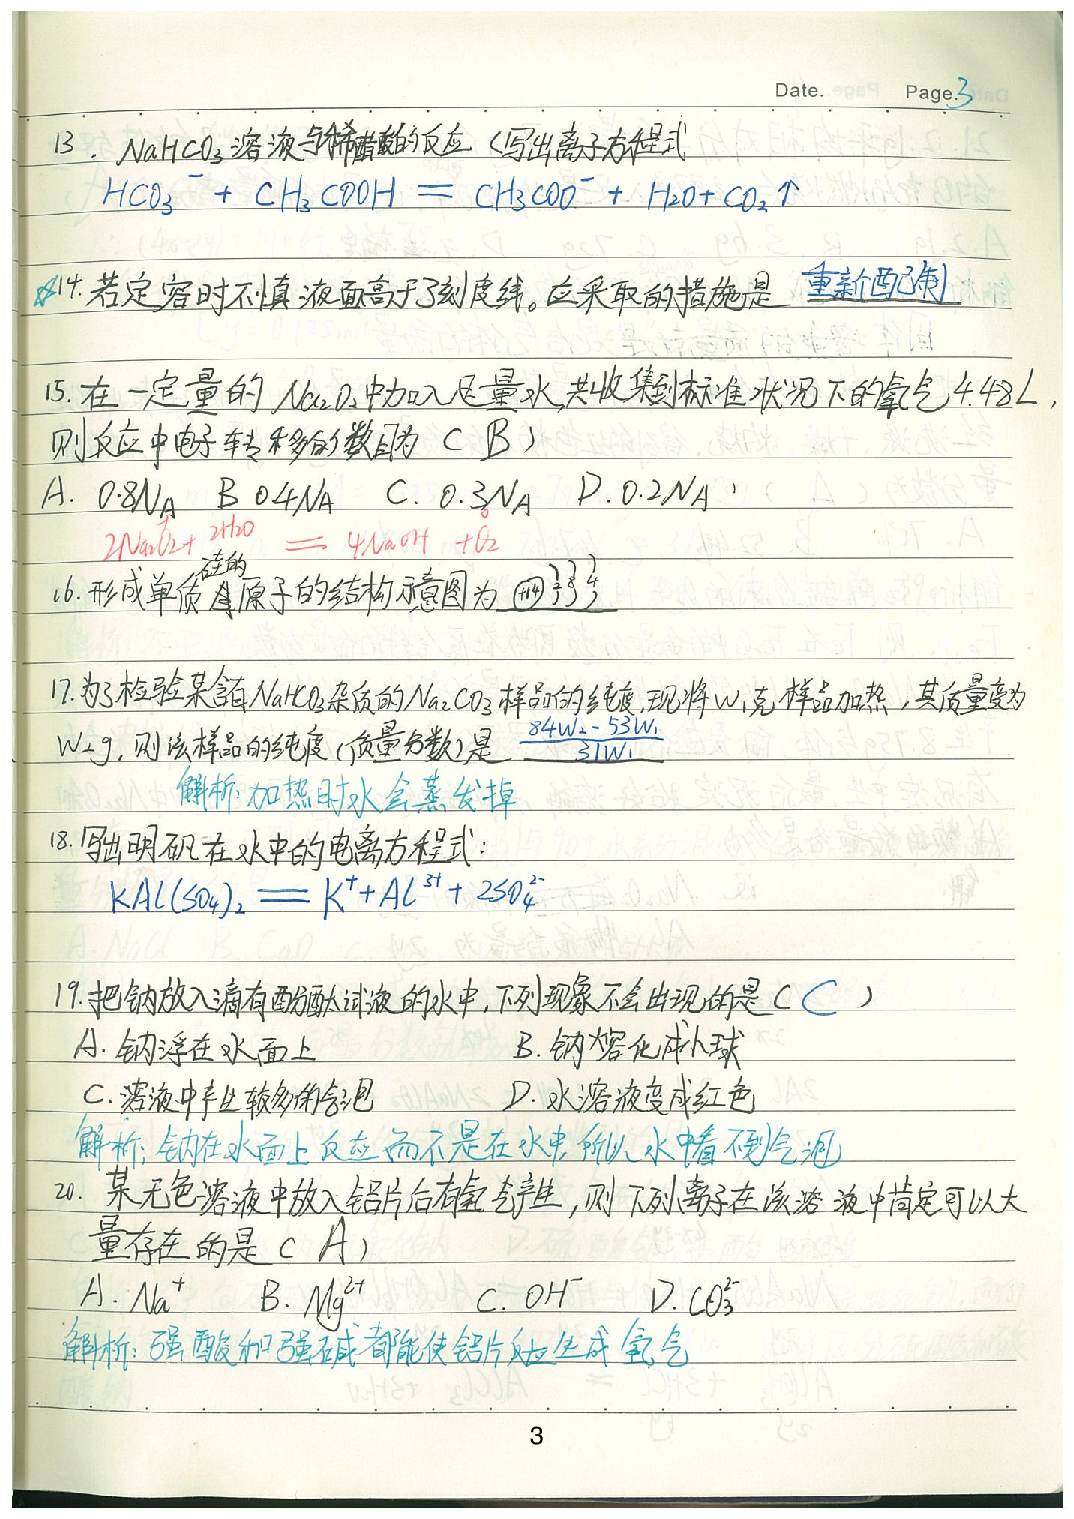 Date. Page.3
13. NaHCO₃溶液与稀醋酸的反应(写出离子方程式
HCO₃⁻ + CH₃COOH = CH₃COO⁻ + H₂O + CO₂↑
☆14. 若定容时不慎液面高于了刻度线。应采取的措施是 重新配制
15. 在一定量的Na₂O₂中加入足量水,共收集到标准状况下的氧气4.48L,
则反应中电子转移的数目为(B)
A. 0.8NA B 0.4NA C. 0.3NA D. 0.2NA
2Na₂O₂ + 2H₂O = 4NaOH + O₂
硅的
16. 形成单质 原子的结构示意图为 +14 2 8 4
17. 为了检验某含有NaHCO₃杂质的Na₂CO₃样品的纯度,现将W₁克样品加热,其质量变为
W₂g,则该样品的纯度(质量分数)是 84W₂-53W₁
31W₁
解析:加热时水会蒸发掉
18. 写出明矾在水中的电离方程式:
KAl(SO₄)₂ = K⁺ + Al³⁺ + 2SO₄²⁻
19. 把钠放入滴有酚酞试液的水中,下列现象不会出现的是(C)
A. 钠浮在水面上 B. 钠熔化成小球
C. 溶液中产生较多的气泡 D. 水溶液变成红色
解析:钠在水面上反应而不是在水中,所以水中看不到气泡
20. 某无色溶液中放入铝片后有氢气产生,则下列离子在该溶液中肯定可以大
量存在的是(A)
A. Na⁺ B. Mg²⁺ C. OH⁻ D. CO₃²⁻
解析:强酸和强碱都能使铝片反应生成氢气
3